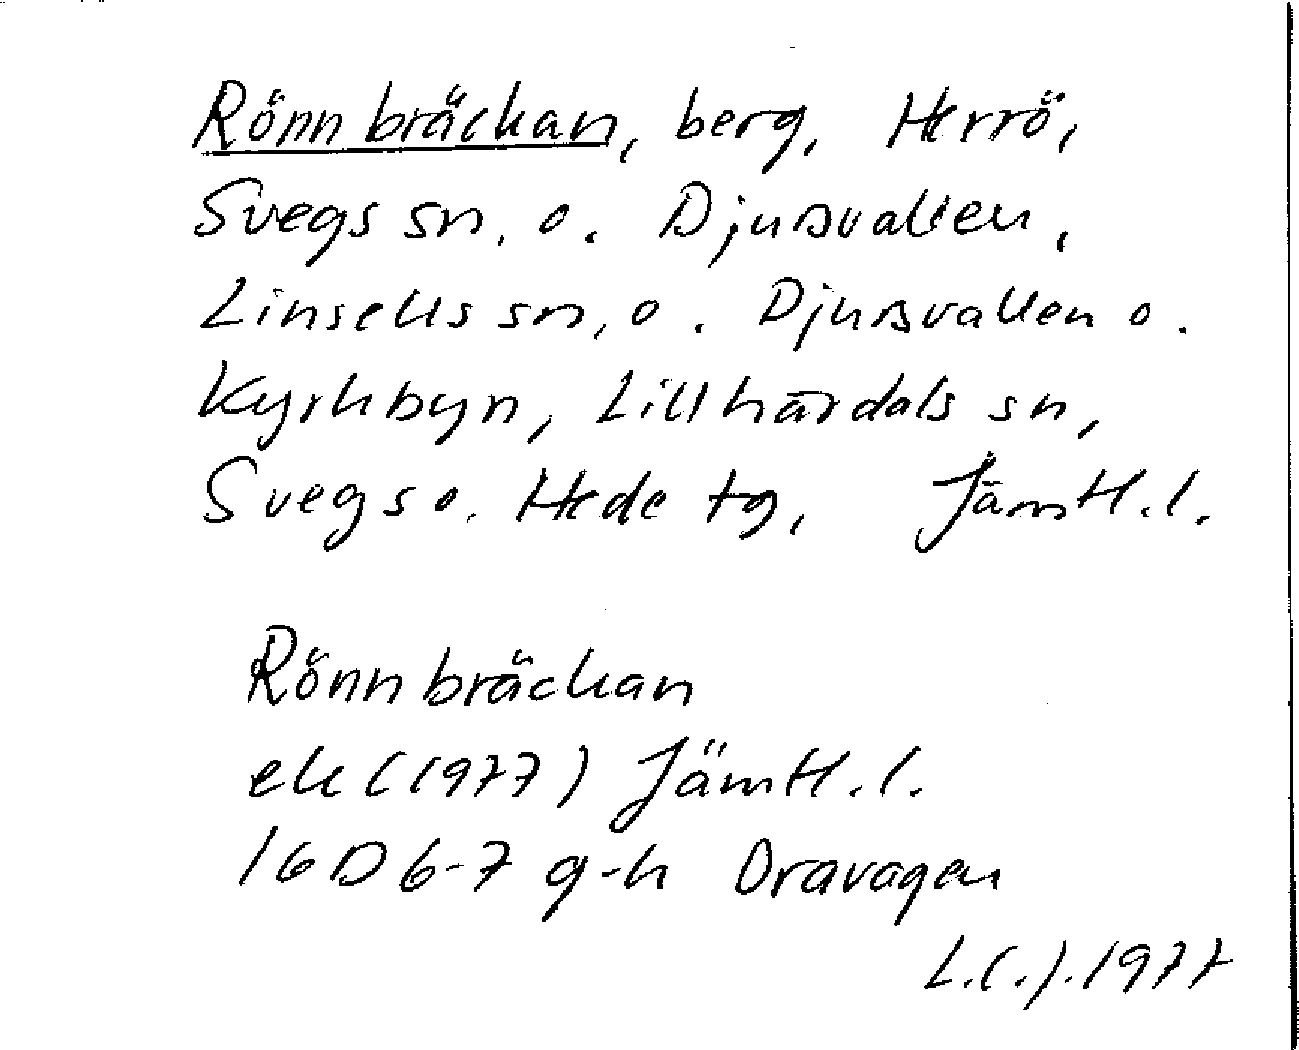 Rönnbräckan, berg, Herrö,
Svegs sn, o. Djursvallen,
Linsells sn, o. Djursvallen o.
Kyrkbyn, Lillhärdals sn,
Svegs o. Hede tg, Jämtl. l.
Rönnbräckan
ek (1977) Jämtl. l.
16D 6-7 g-h Oravagen
1977